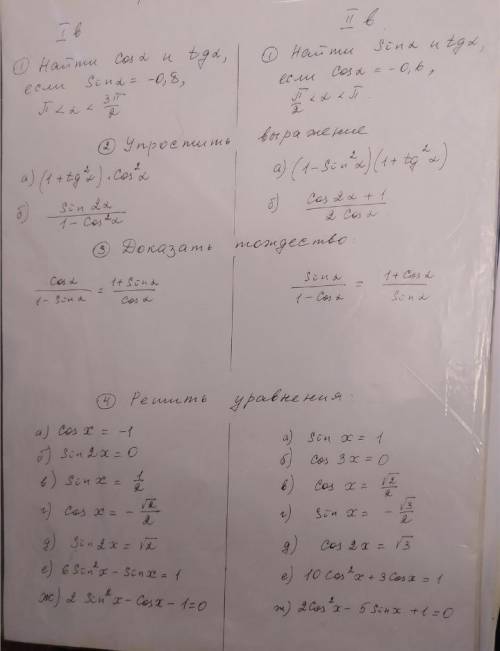 I в
① Найти cosα и tgα,
если sinα = -0,8,
π < α < 3π/2
II в
① Найти sinα и tgα,
если cosα = -0,6,
π/2 < α < π.
② Упростить выражение
а) (1+tg²α)·cos²α
б) sin2α / (1-cos²α)
а) (1-sin²α)(1+tg²α)
б) (cos2α+1) / (2cosα)
③ Доказать тождество:
cosα / (1-sinα) = (1+sinα) / cosα
sinα / (1-cosα) = (1+cosα) / sinα
④ Решить уравнения:
а) cos x = -1
б) sin2x = 0
в) sin x = 1/2
г) cos x = -√2/2
д) sin2x = √2
е) 6sin²x - sinx = 1
ж) 2sin²x - cosx - 1 = 0
а) sin x = 1
б) cos 3x = 0
в) cos x = √2/2
г) sin x = -√3/2
д) cos2x = √3
е) 10cos²x + 3cosx = 1
ж) 2cos²x - 5sinx + 1 = 0